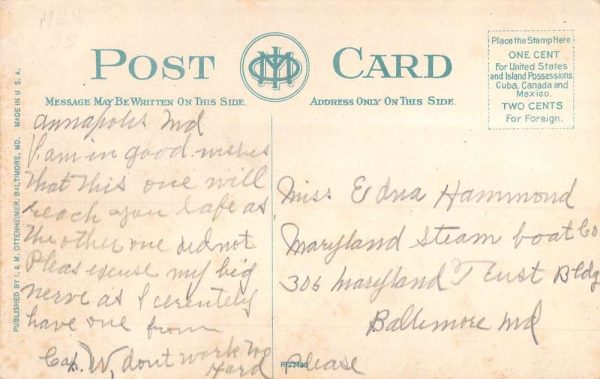 POST CARD
MESSAGE MAY BE WRITTEN ON THIS SIDE.
ADDRESS ONLY ON THIS SIDE.
Place the Stamp Here
ONE CENT
For United States
and Island Possessions,
Cuba, Canada and
Mexico.
TWO CENTS
For Foreign.
PUBLISHED BY I. & M. OTTENHEIMER, BALTIMORE, MD. MADE IN U. S. A.
Annapolis Md
I am in good wishes
that this one will
reach you safe as
the other one did not
Pleas excuse my big
nerve as I cerentely
have one from
Cap. W, dont work to
Hard
Please
Miss Edna Hammond
Maryland Steam boat Co
306 Maryland Trust Bldg
Baltimore Md